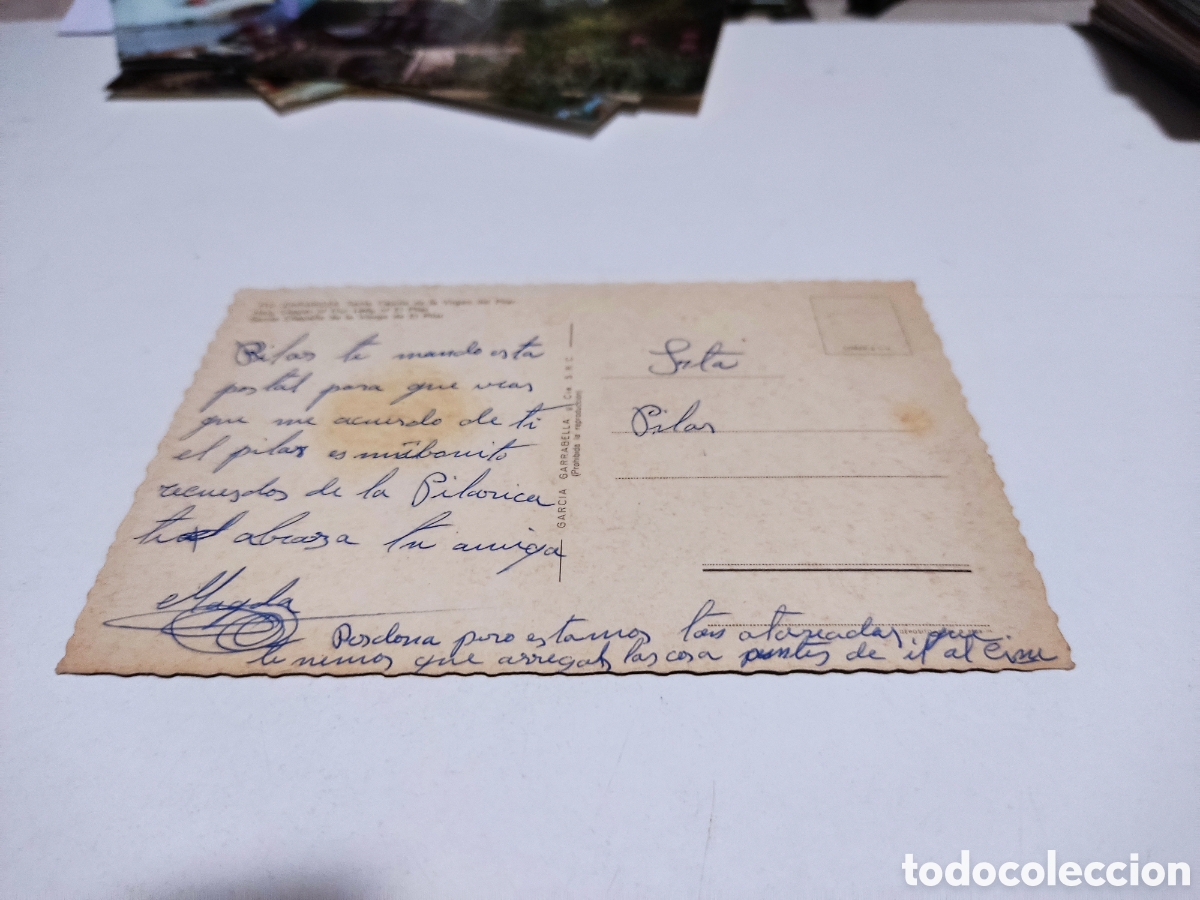 Pilar te mando esta
postal para que veas
que me acuerdo de ti
el pilar es mū bonito
recuerdos de la Pilarica
te abraza tu amiga
Magda
Perdona pero estamos tan atareadas, que
te nemos que arreglar las cosa antes de ir al Cine
GARCIA GARRABELLA y Cia S.R.C.
(Prohibida la reproducción)
Srta
Pilar
todocoleccion